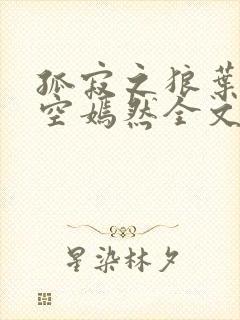 孤寂之狼叶
空嫣然全文
星染林夕